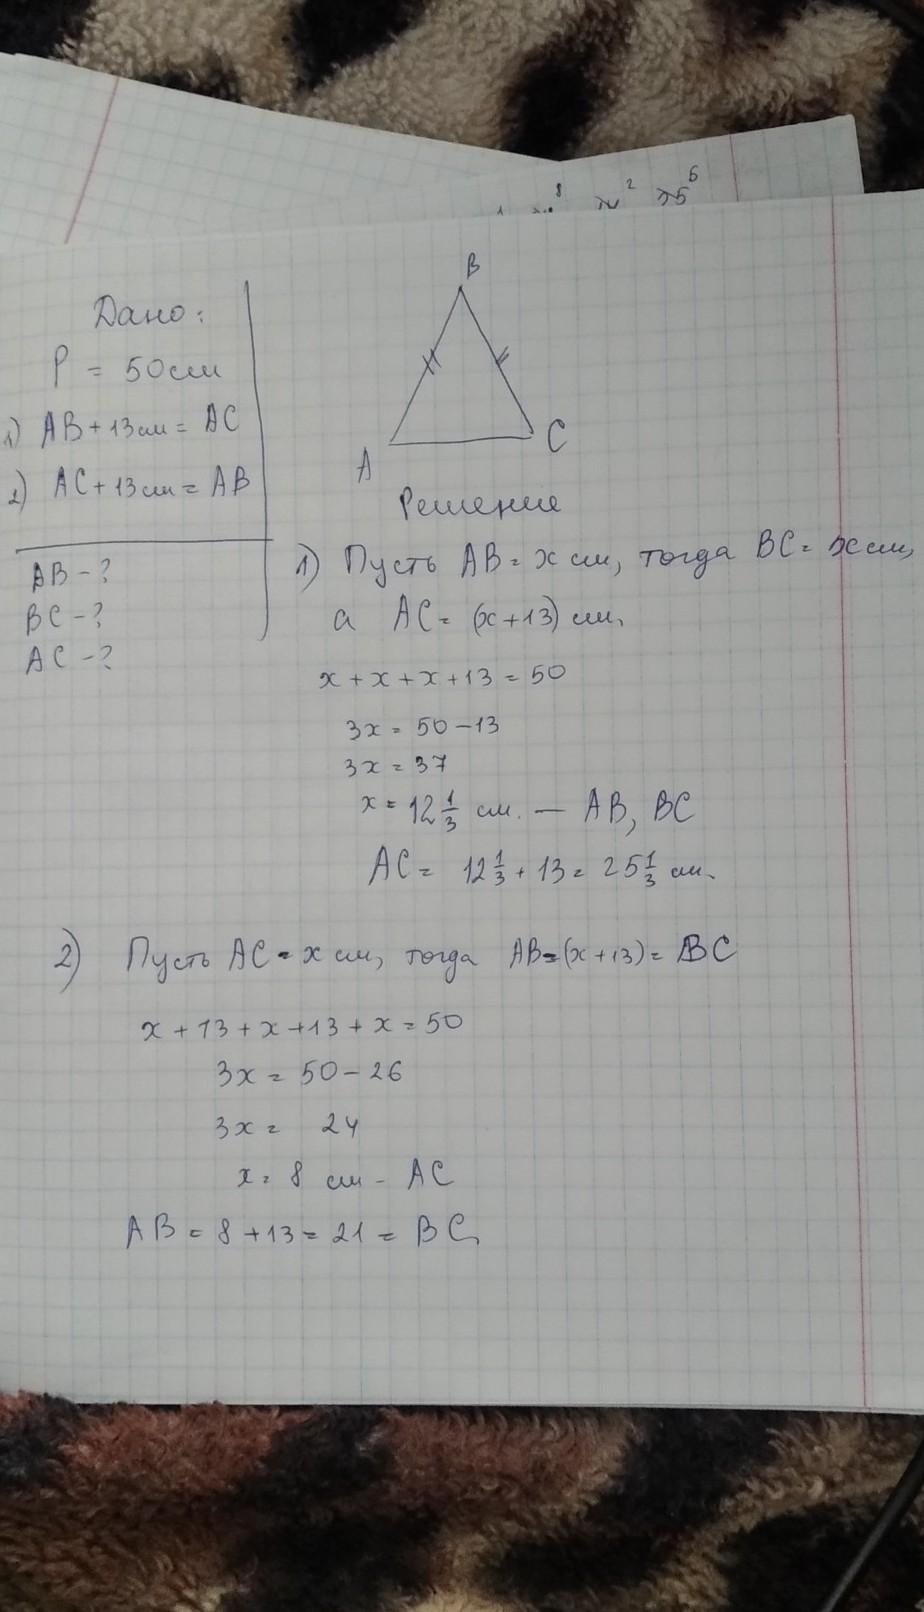 x² x5⁶
B
Дано:
P = 50см
1) AB + 13см = AC
2) AC + 13см = AB
A
C
AB - ?
BC - ?
AC - ?
Решение
1) Пусть AB = x см, тогда BC = x см,
а AC = (x + 13) см.
x + x + x + 13 = 50
3x = 50 - 13
3x = 37
x = 12 1/3 см. — AB, BC
AC = 12 1/3 + 13 = 25 1/3 см.
2) Пусть AC = x см, тогда AB = (x + 13) = BC
x + 13 + x + 13 + x = 50
3x = 50 - 26
3x = 24
x = 8 см - AC
AB = 8 + 13 = 21 = BC